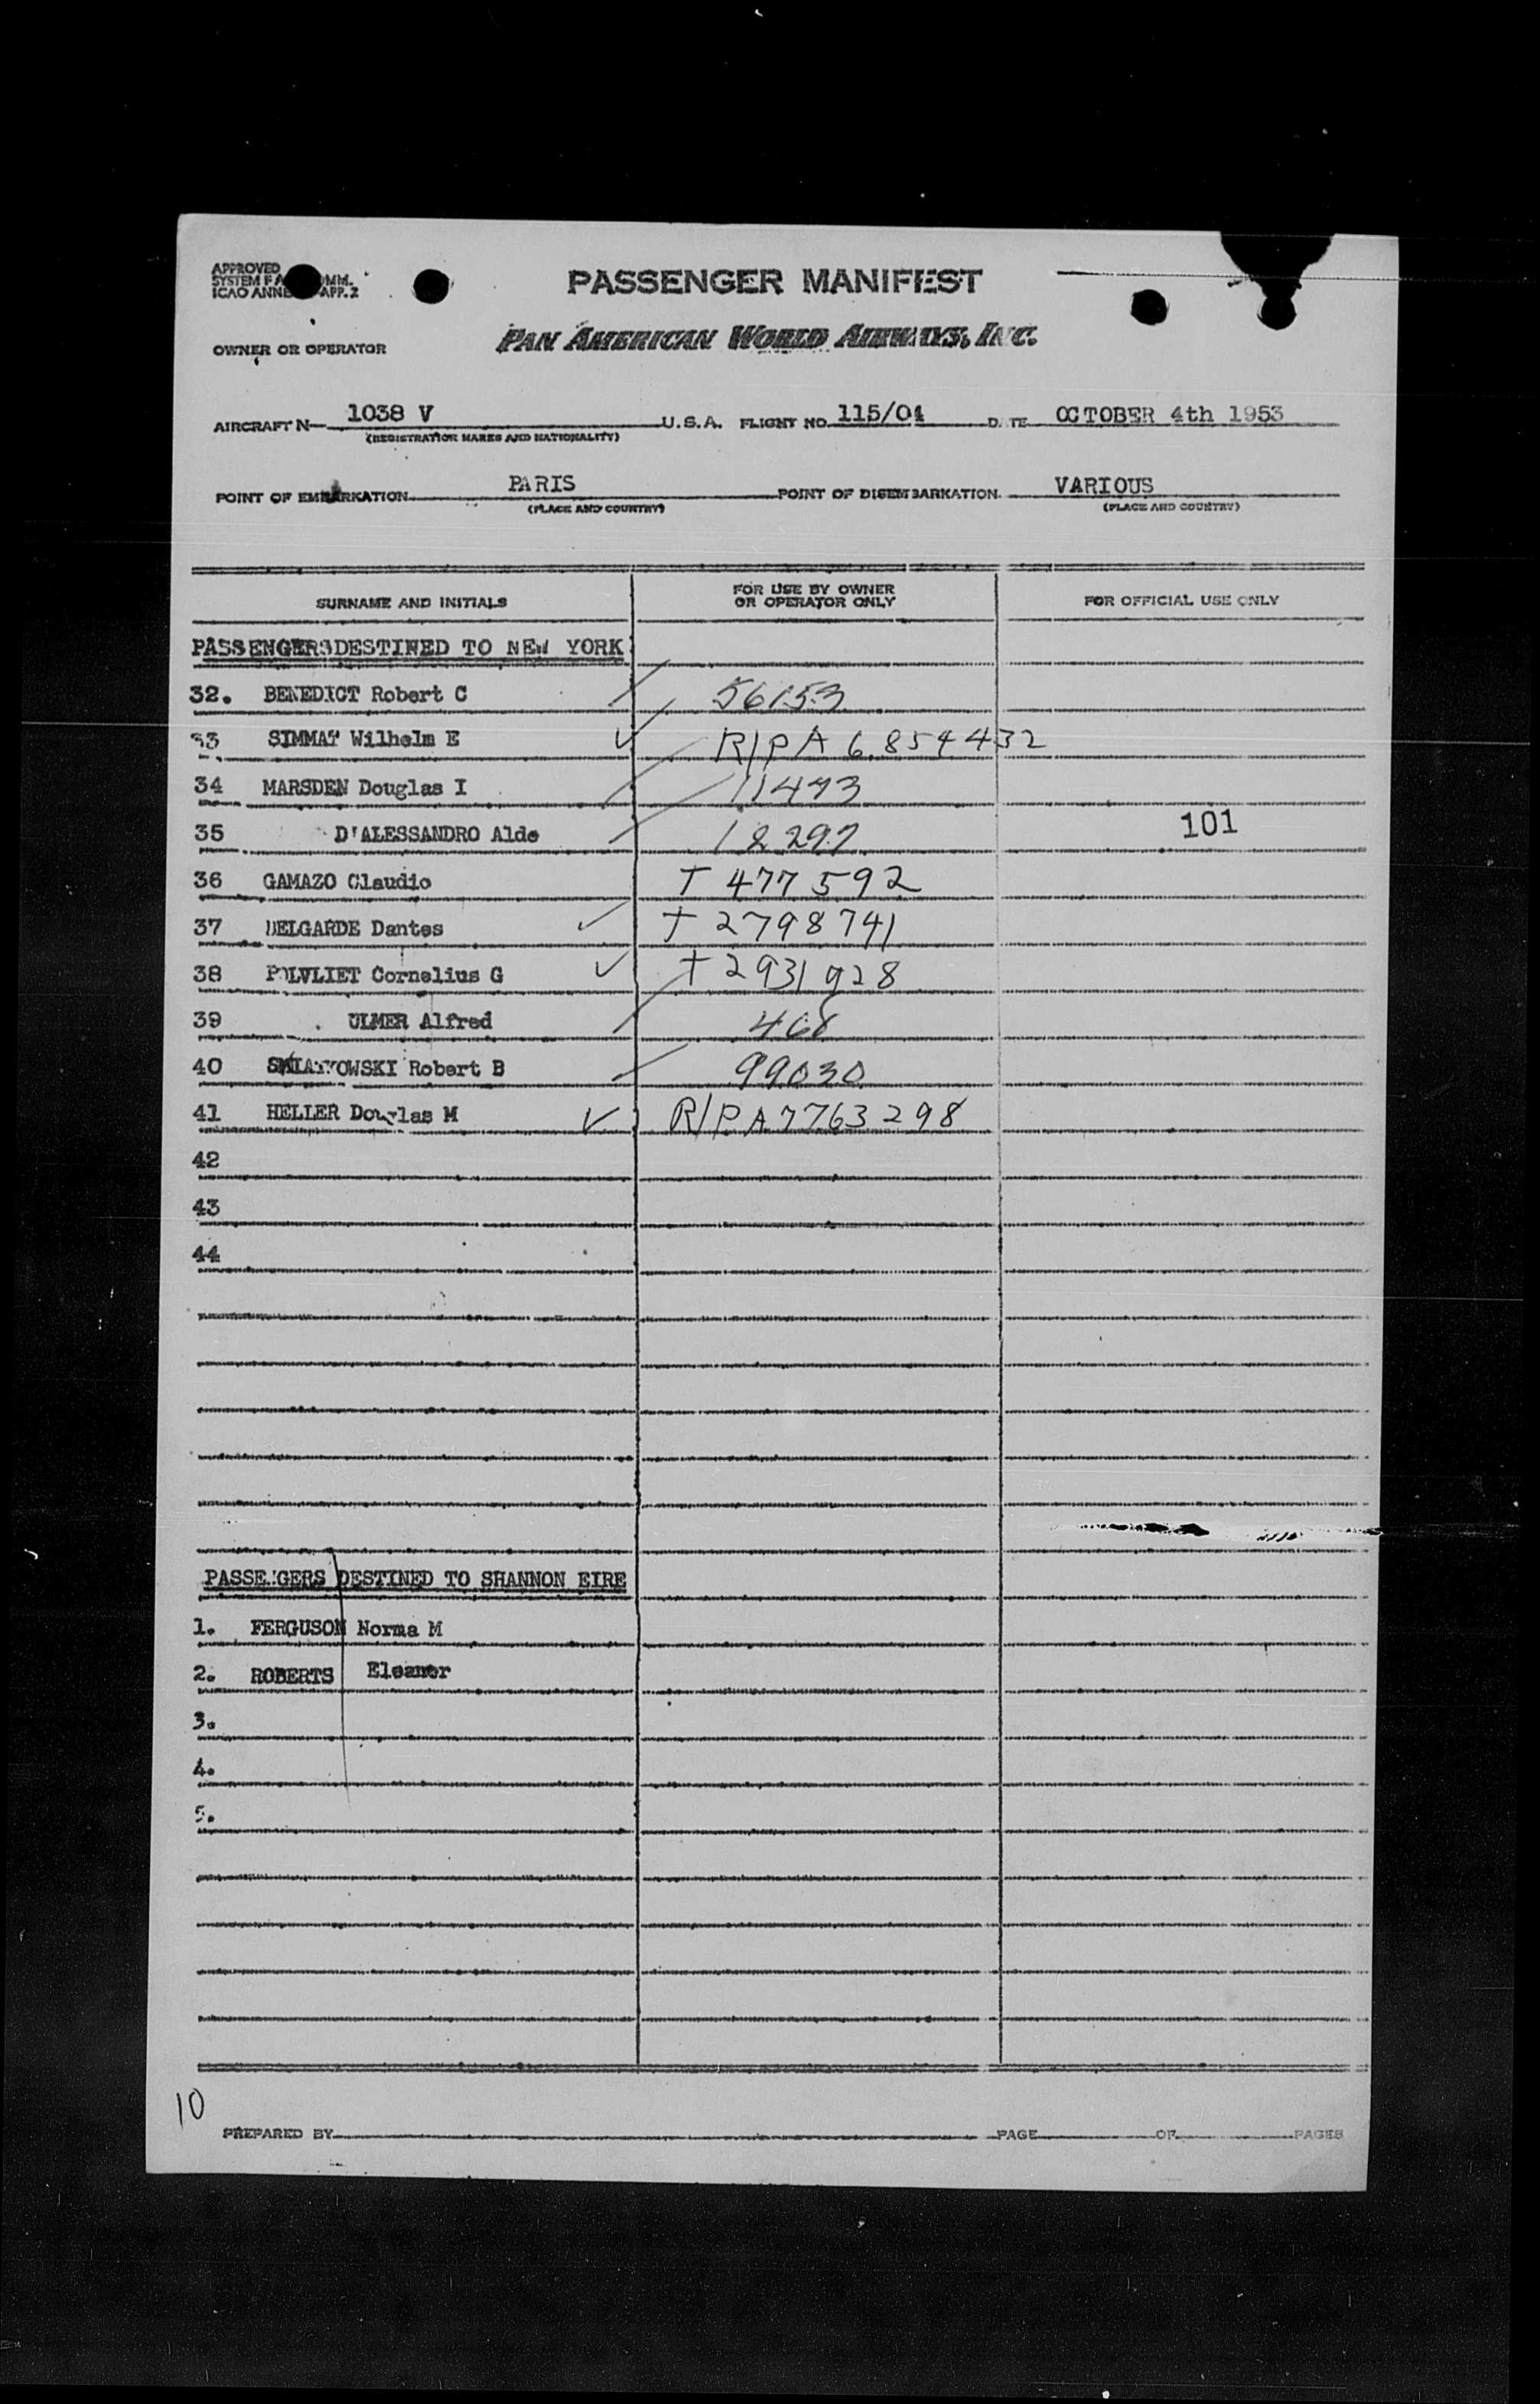 APPROVED
SYSTEM
ICAO APP. 2
PASSENGER MANIFEST
OWNER OR OPERATOR
PAN AMERICAN WORLD AIRWAYS, INC.
AIRCRAFT N— 1038 V U.S.A. FLIGHT NO. 115/04 DATE OCTOBER 4th 1953
(REGISTRATION MARKS AND NATIONALITY)
POINT OF EMBARKATION PARIS POINT OF DISEMBARKATION VARIOUS
(PLACE AND COUNTRY) (PLACE AND COUNTRY)
SURNAME AND INITIALS FOR USE BY OWNER OR OPERATOR ONLY FOR OFFICIAL USE ONLY
PASSENGERS DESTINED TO NEW YORK
32. BENEDICT Robert C 56153
33 SIMMAT Wilhelm E R/P A 6 854432
34 MARSDEN Douglas I 11493
35 D'ALESSANDRO Aldo 18297 101
36 GAMAZO Claudio T 477592
37 BELGARDE Dantes T 2798741
38 POLVLIET Cornelius G T 2931928
39 ULMER Alfred 468
40 Robert B 99030
41 HELLER Douglas M R/P A 7763298
42
43
44
PASSENGERS DESTINED TO SHANNON EIRE
1. FERGUSON Norma M
2. ROBERTS Eleanor
3.
4.
5.
10
PREPARED BY PAGE OF PAGES